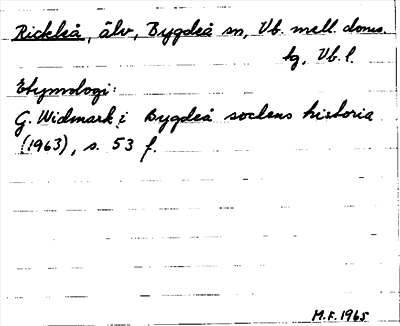 Rickleå, älv, Bygdeå sn, Vb. mell. doms.
tg, Vb. l.
Etymologi:
G. Widmark i Bygdeå sockens historia
(1963), s. 53 f.
M.F. 1965